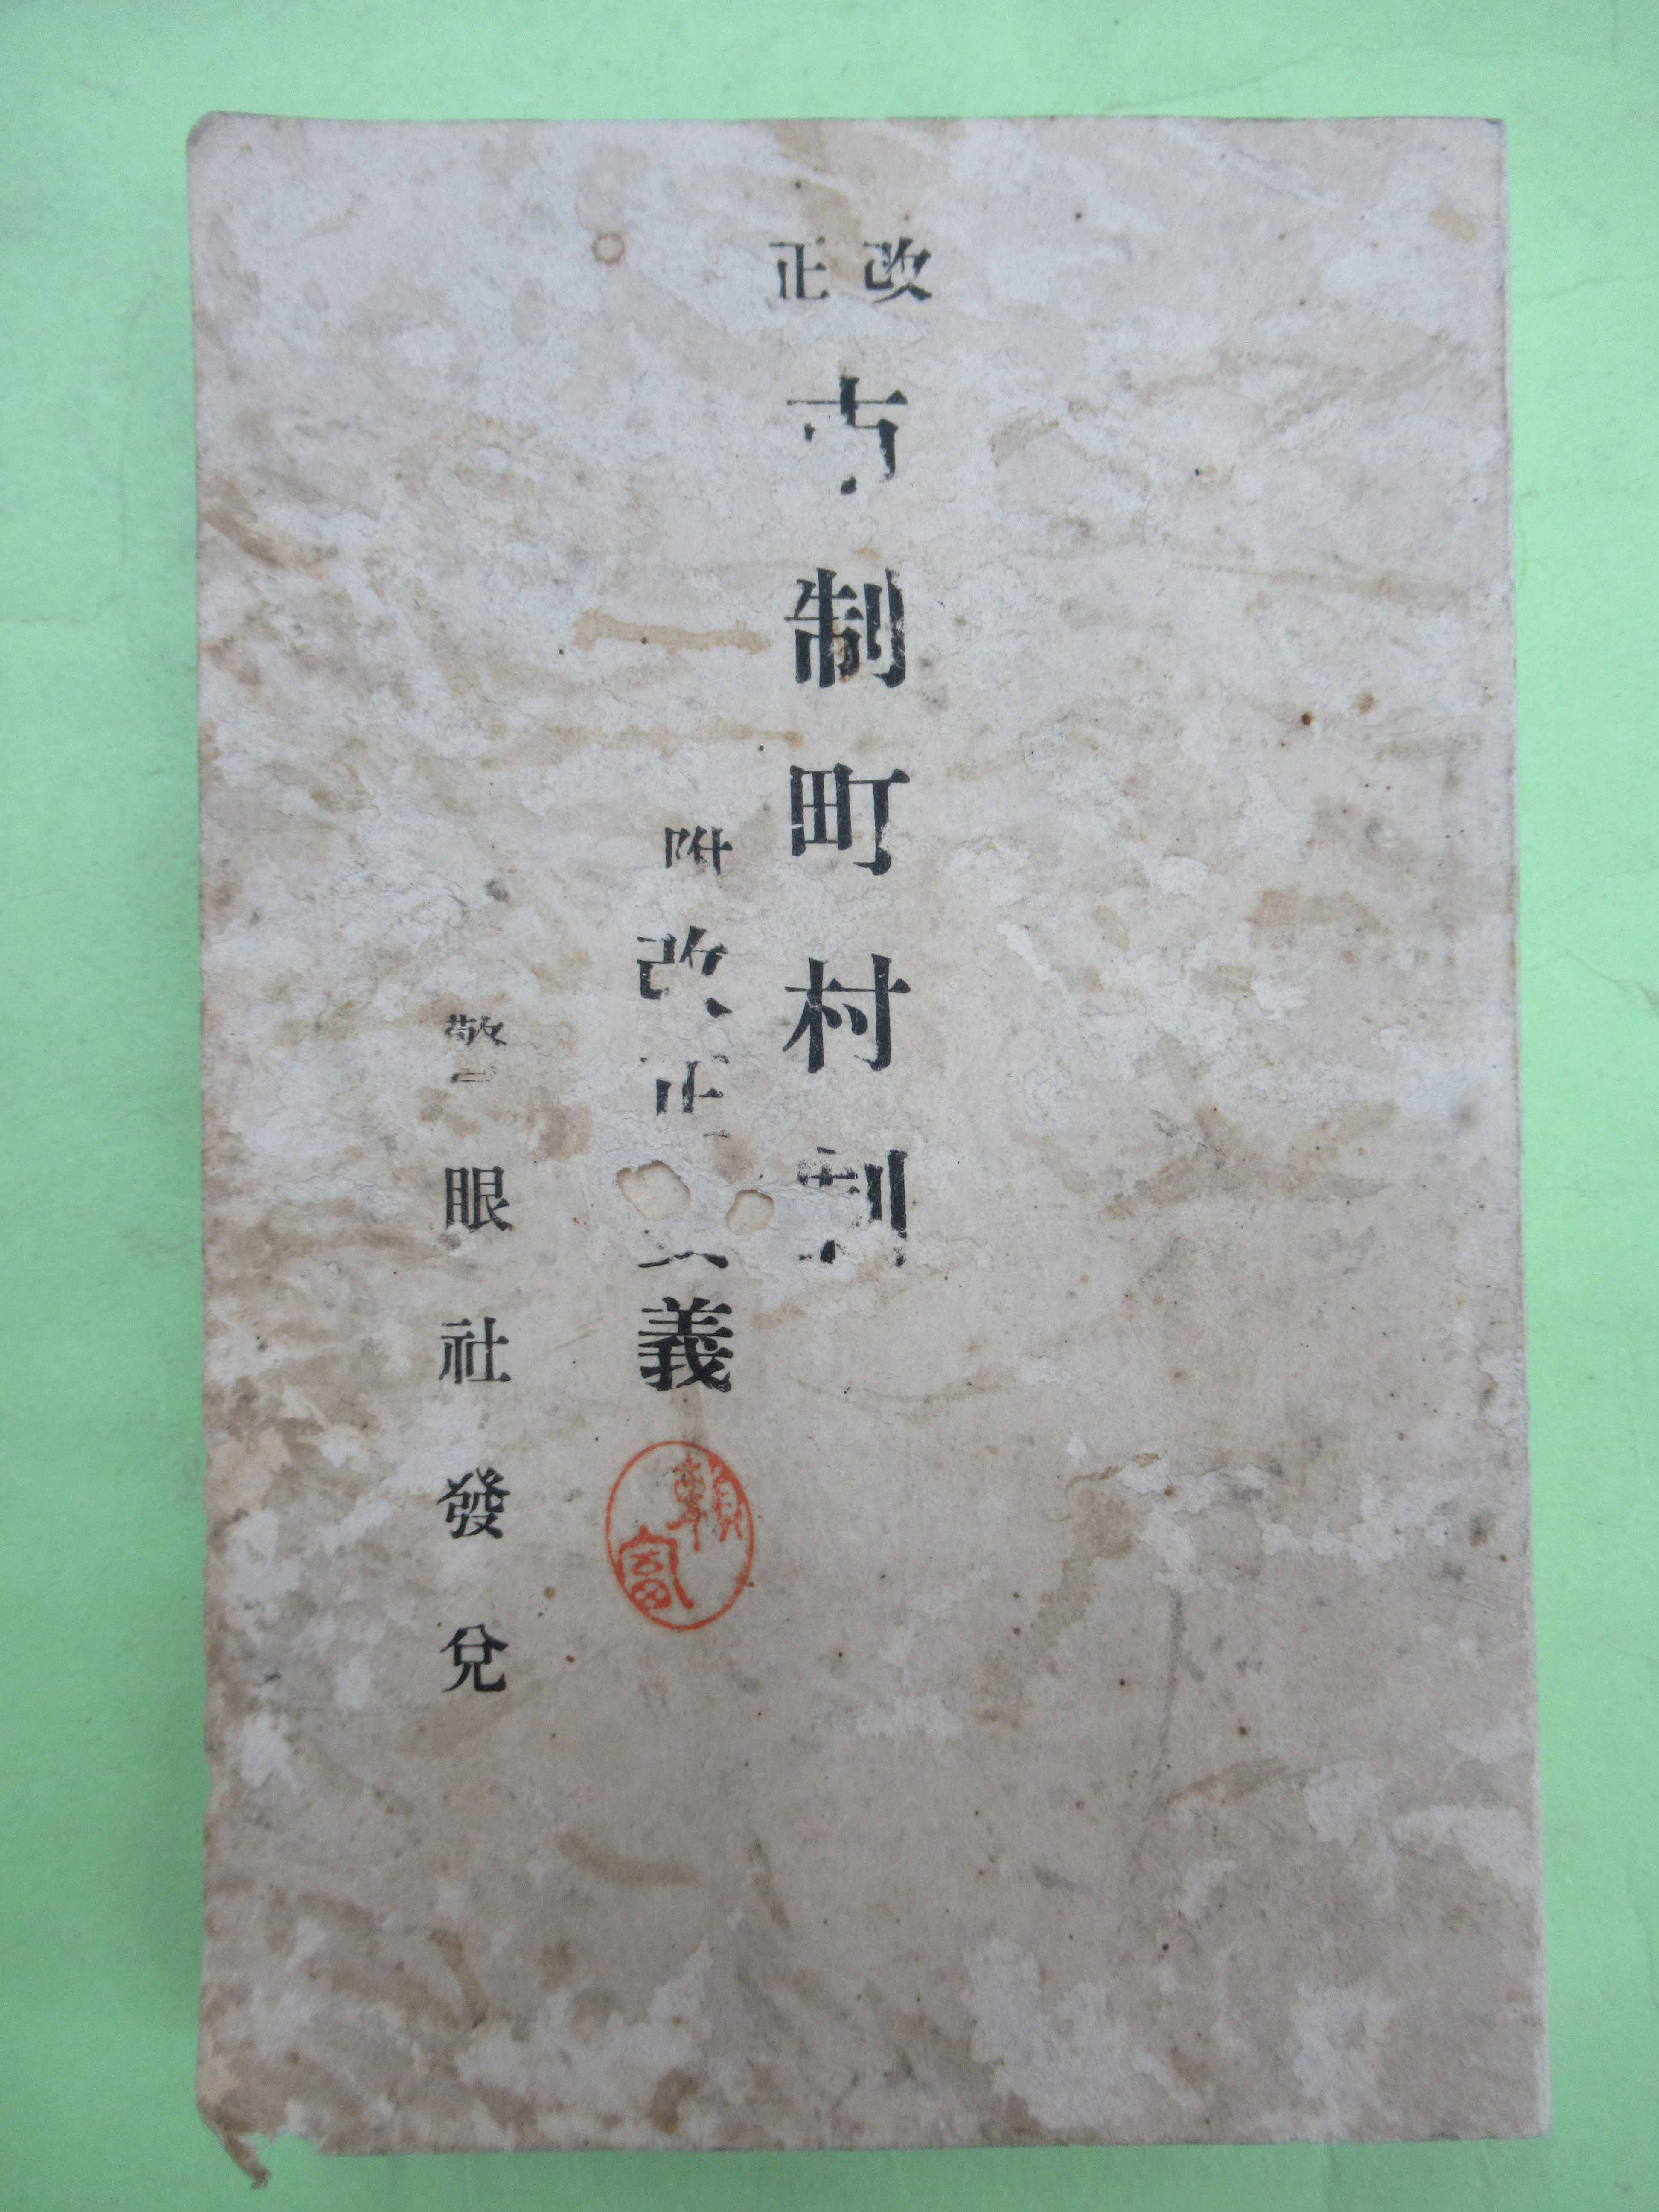 改正
市制町村制
附
改正
義
警眼社發兌